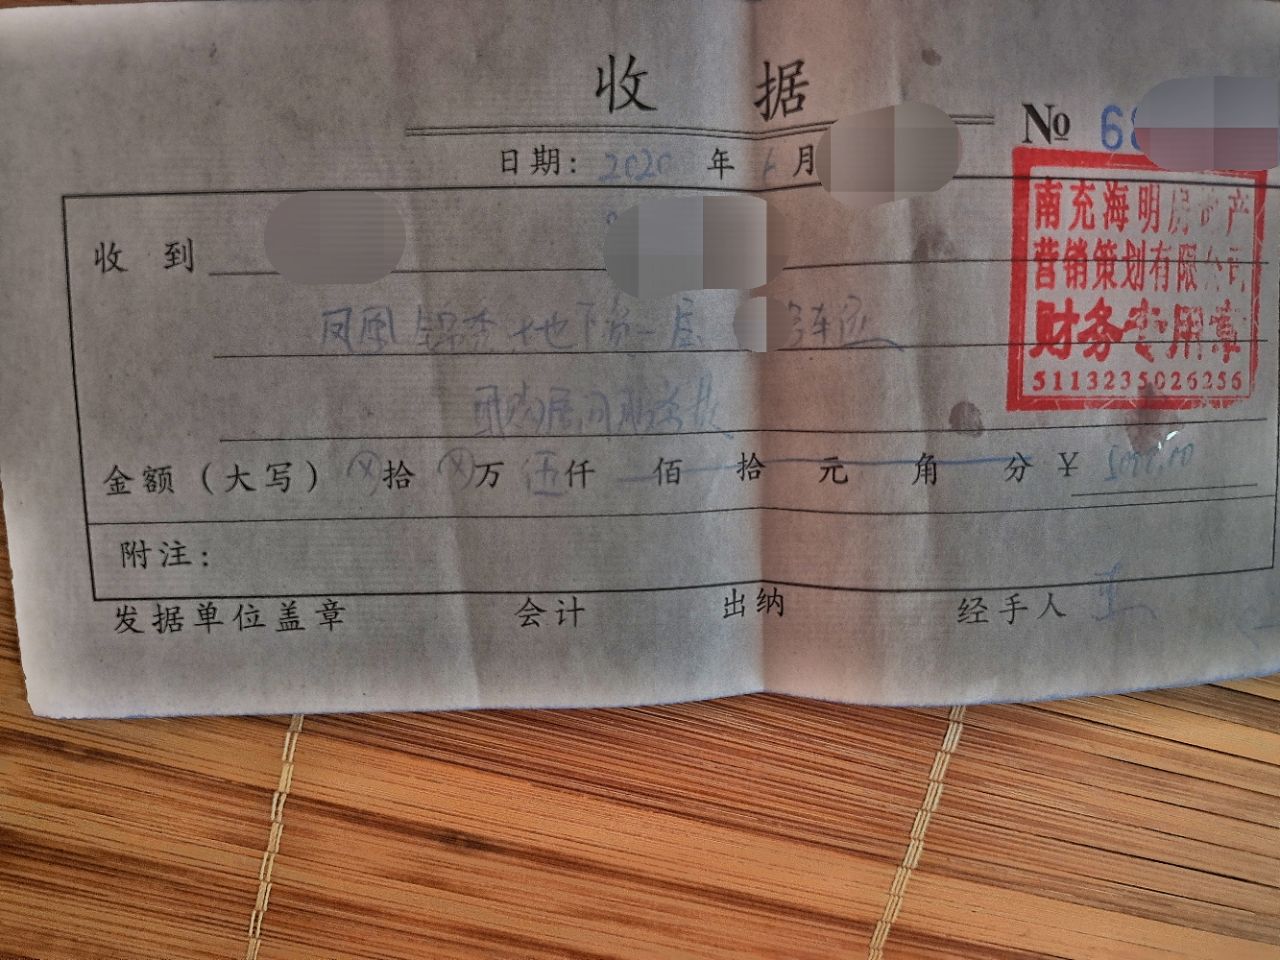 收 据
№ 68
日期: 2020 年 6 月
南充海明房地产
营销策划有限公司
财务专用章
5113235026256
收 到
凤凰锦秀地下负一层 号车位
金额(大写) ⊗拾 ⊗万 伍仟 佰 拾 元 角 分 ¥ 5000.00
附注:
发据单位盖章 会计 出纳 经手人